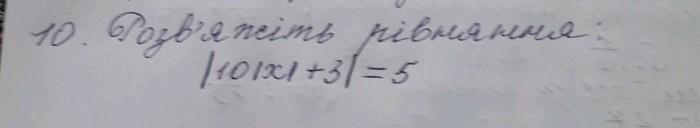 10. Розв'яжіть рівняння:
|10|x|+3|=5